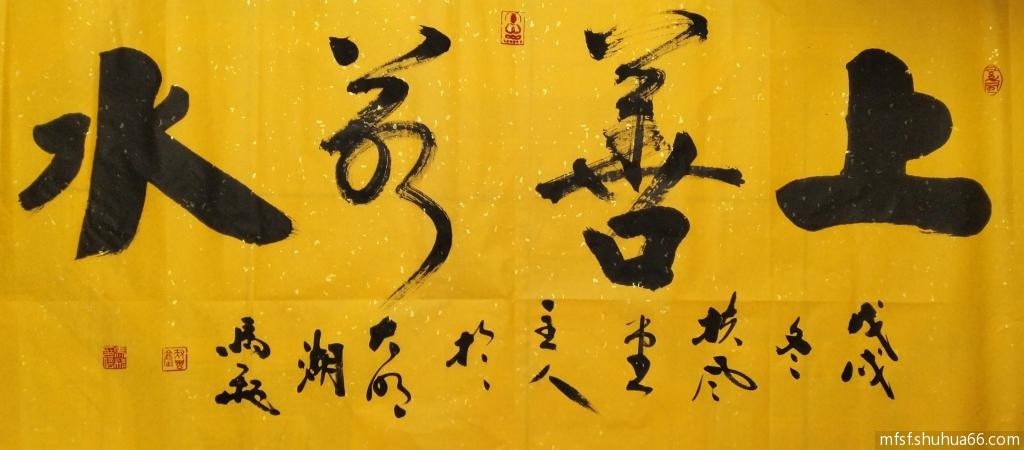 上善若水
戊戌
冬
扶风
堂
主人
於
大明
湖
mfsf.shuhua66.com